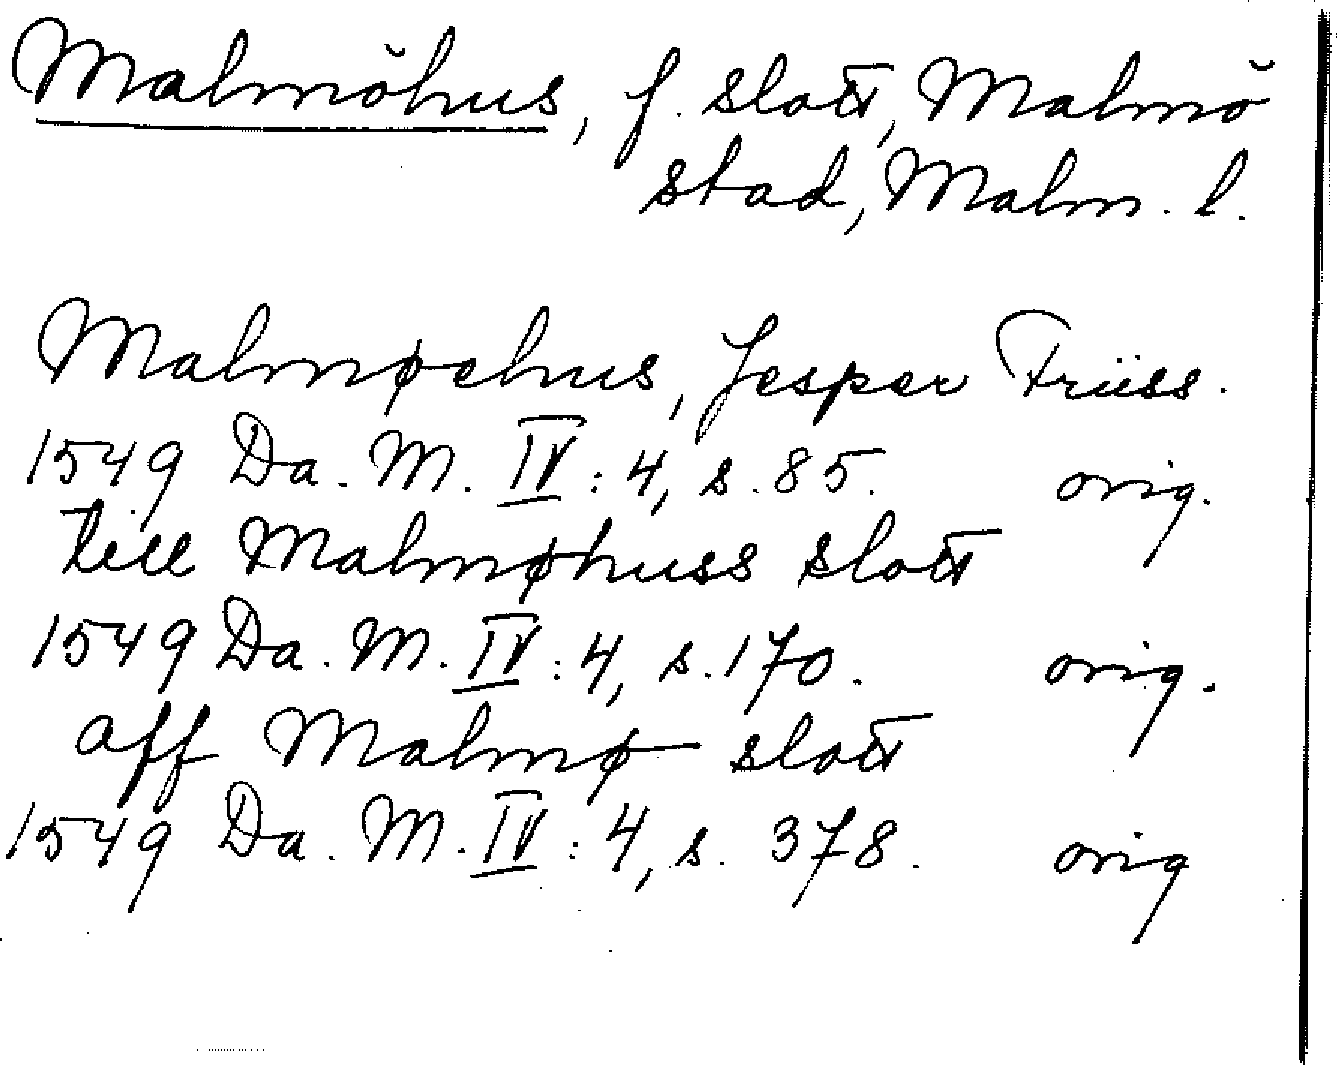 Malmöhus, f. slott, Malmö
stad, Malm. l.
Malmøehus, Jesper Friiss.
1549 Da. M. IV: 4, s. 85. orig.
till Malmøhuss slott
1549 Da. M. IV: 4, s. 170. orig.
aff Malmø slott
1549 Da. M. IV: 4, s. 378. orig